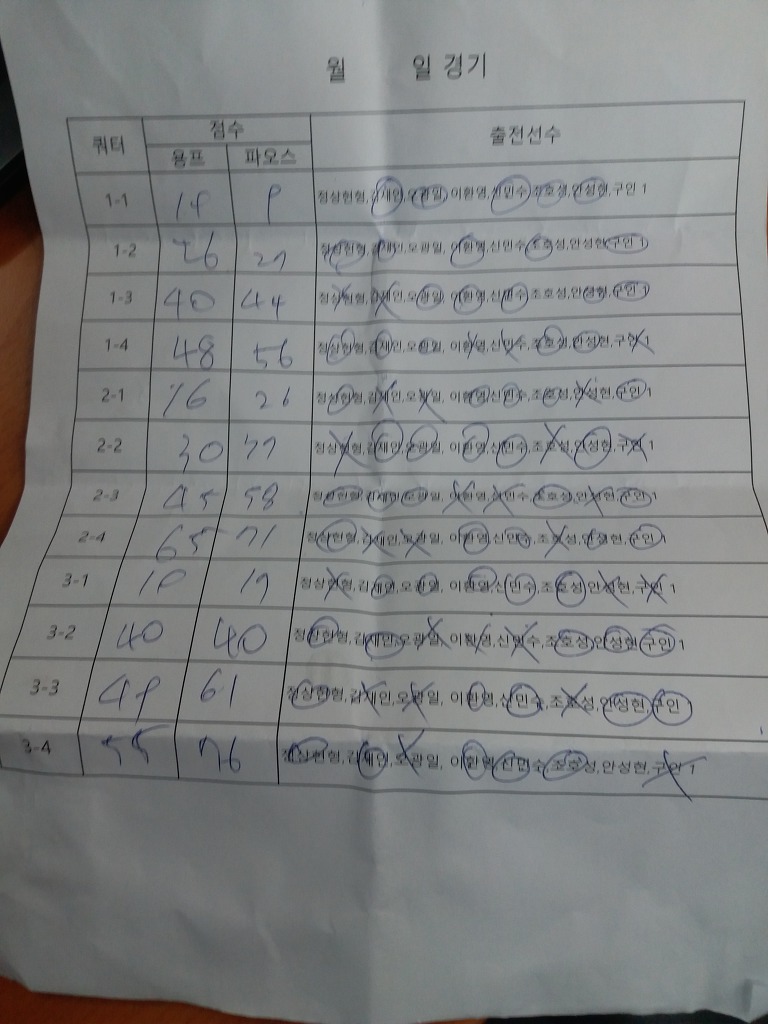 월 일 경기
쿼터 점수 출전선수
용프 파오스
1-1 정상헌형,김재민,오광일, 이환영,신민수,조호성,안성현,구인 1
1-2 26 27 정상헌형,김재민,오광일, 이환영,신민수,조호성,안성현,구인 1
1-3 40 44 정상헌형,김재민,오광일, 이환영,신민수,조호성,안성현,구인 1
1-4 48 56 정상헌형,김재민,오광일, 이환영,신민수,조호성,안성현,구인
2-1 16 26 정상헌형,김재민,오광일, 이환영,신민수,조호성,안성현,구인 1
2-2 30 37 정상헌형,김재민,오광일, 이환영,신민수,조호성,안성현,구인 1
2-3 45 58 정상헌형,김재민,오광일, 이환영,신민수,조호성,안성현,구인 1
2-4 65 71 정상헌형,김재민,오광일, 이환영,신민수,조호성,안성현,구인 1
3-1 19 정상헌형,김재민,오광일, 이환영,신민수,조호성,안성현,구인 1
3-2 40 40 정상헌형,김재민,오광일, 이환영,신민수,조호성,안성현,구인 1
3-3 49 61 정상헌형,김재민,오광일, 이환영,신민수,조호성,안성현,구인 1
3-4 55 76 정상헌형,김재민,오광일, 이환영,신민수,조호성,안성현,구인 1